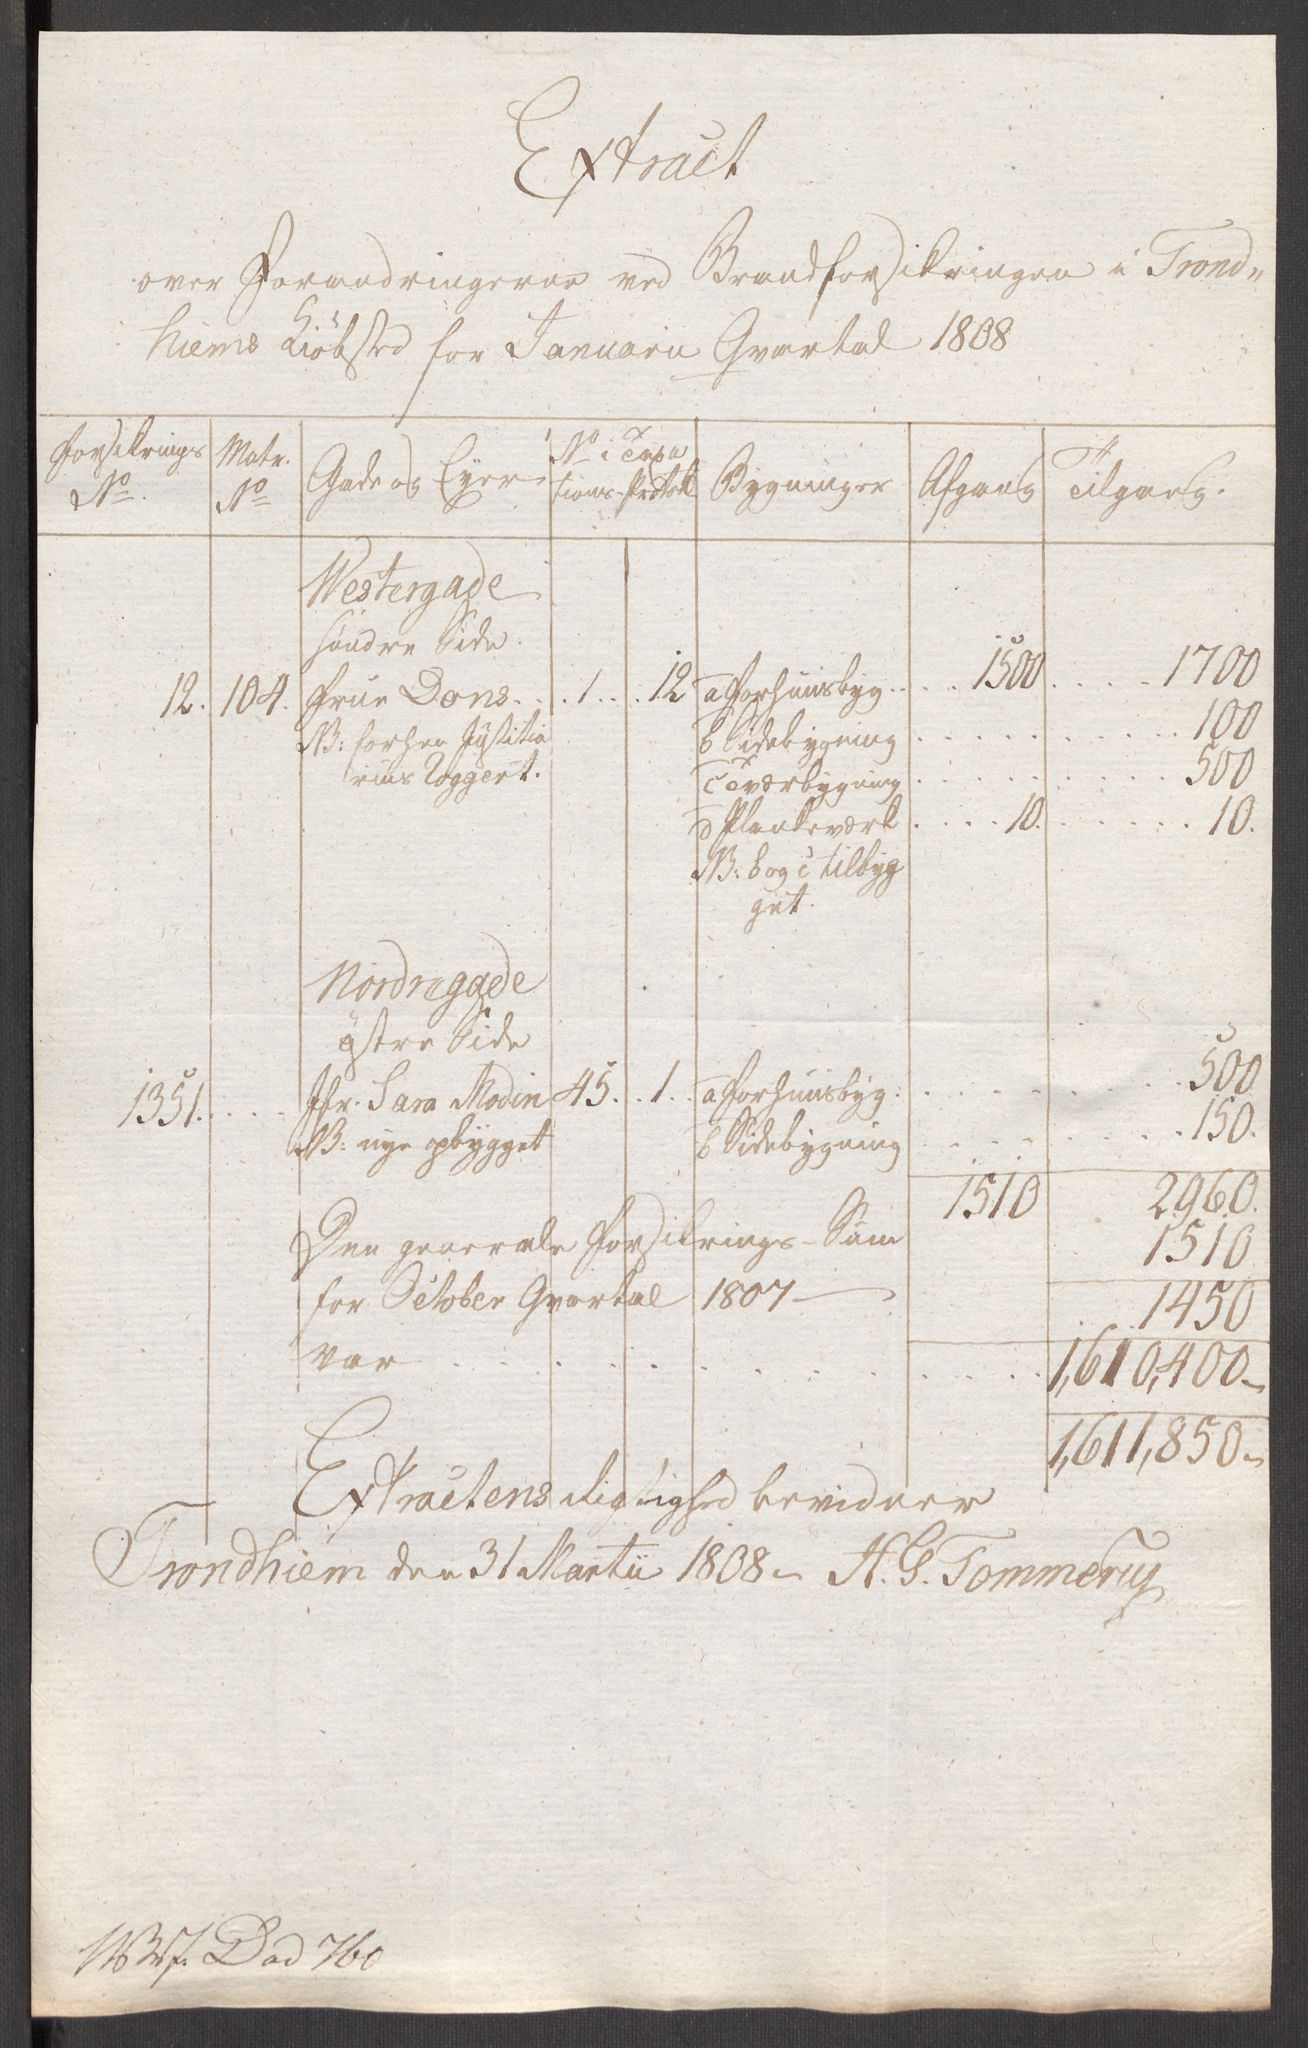 Extract
over Forandringerne ved Brandforsikringen i Trond-
hiems Kiøbsted for Januarii Qvartal 1808
Forsikrings No Matr. No Gade og Eyer No i Taxa tions-Protok Bygninger Afgang Tilgang.
Westergade
søndre Side
12. 104. Frue Dons . . 1 . . 12 a Forhuusbyg . . 1500 . . . . 1700
NB: forhen Justitia b Sidebygning . . . . 100
rius Coggert. c Tværbygning . . . . 500
d Plankeværk . . . . 10. . . . . 10.
NB: b og c tilbyg
get.
Nordregade
østre Side
1351. . . . . Jfr. Sara Modin 45. . 1. . a Forhuusbyg: . . . . 500
NB: nye opbygget b Sidebygning . . . . 150.
1510 2960.
Den generale Forsikrings-Sum 1510
for October Qvartal 1807 — 1450
var . . . . . . . . . 1,610,400 -
1,611,850 -
Extractens Rigtighed bevidner
Trondhiem den 31 Martii 1808 - H. G. Tommerup